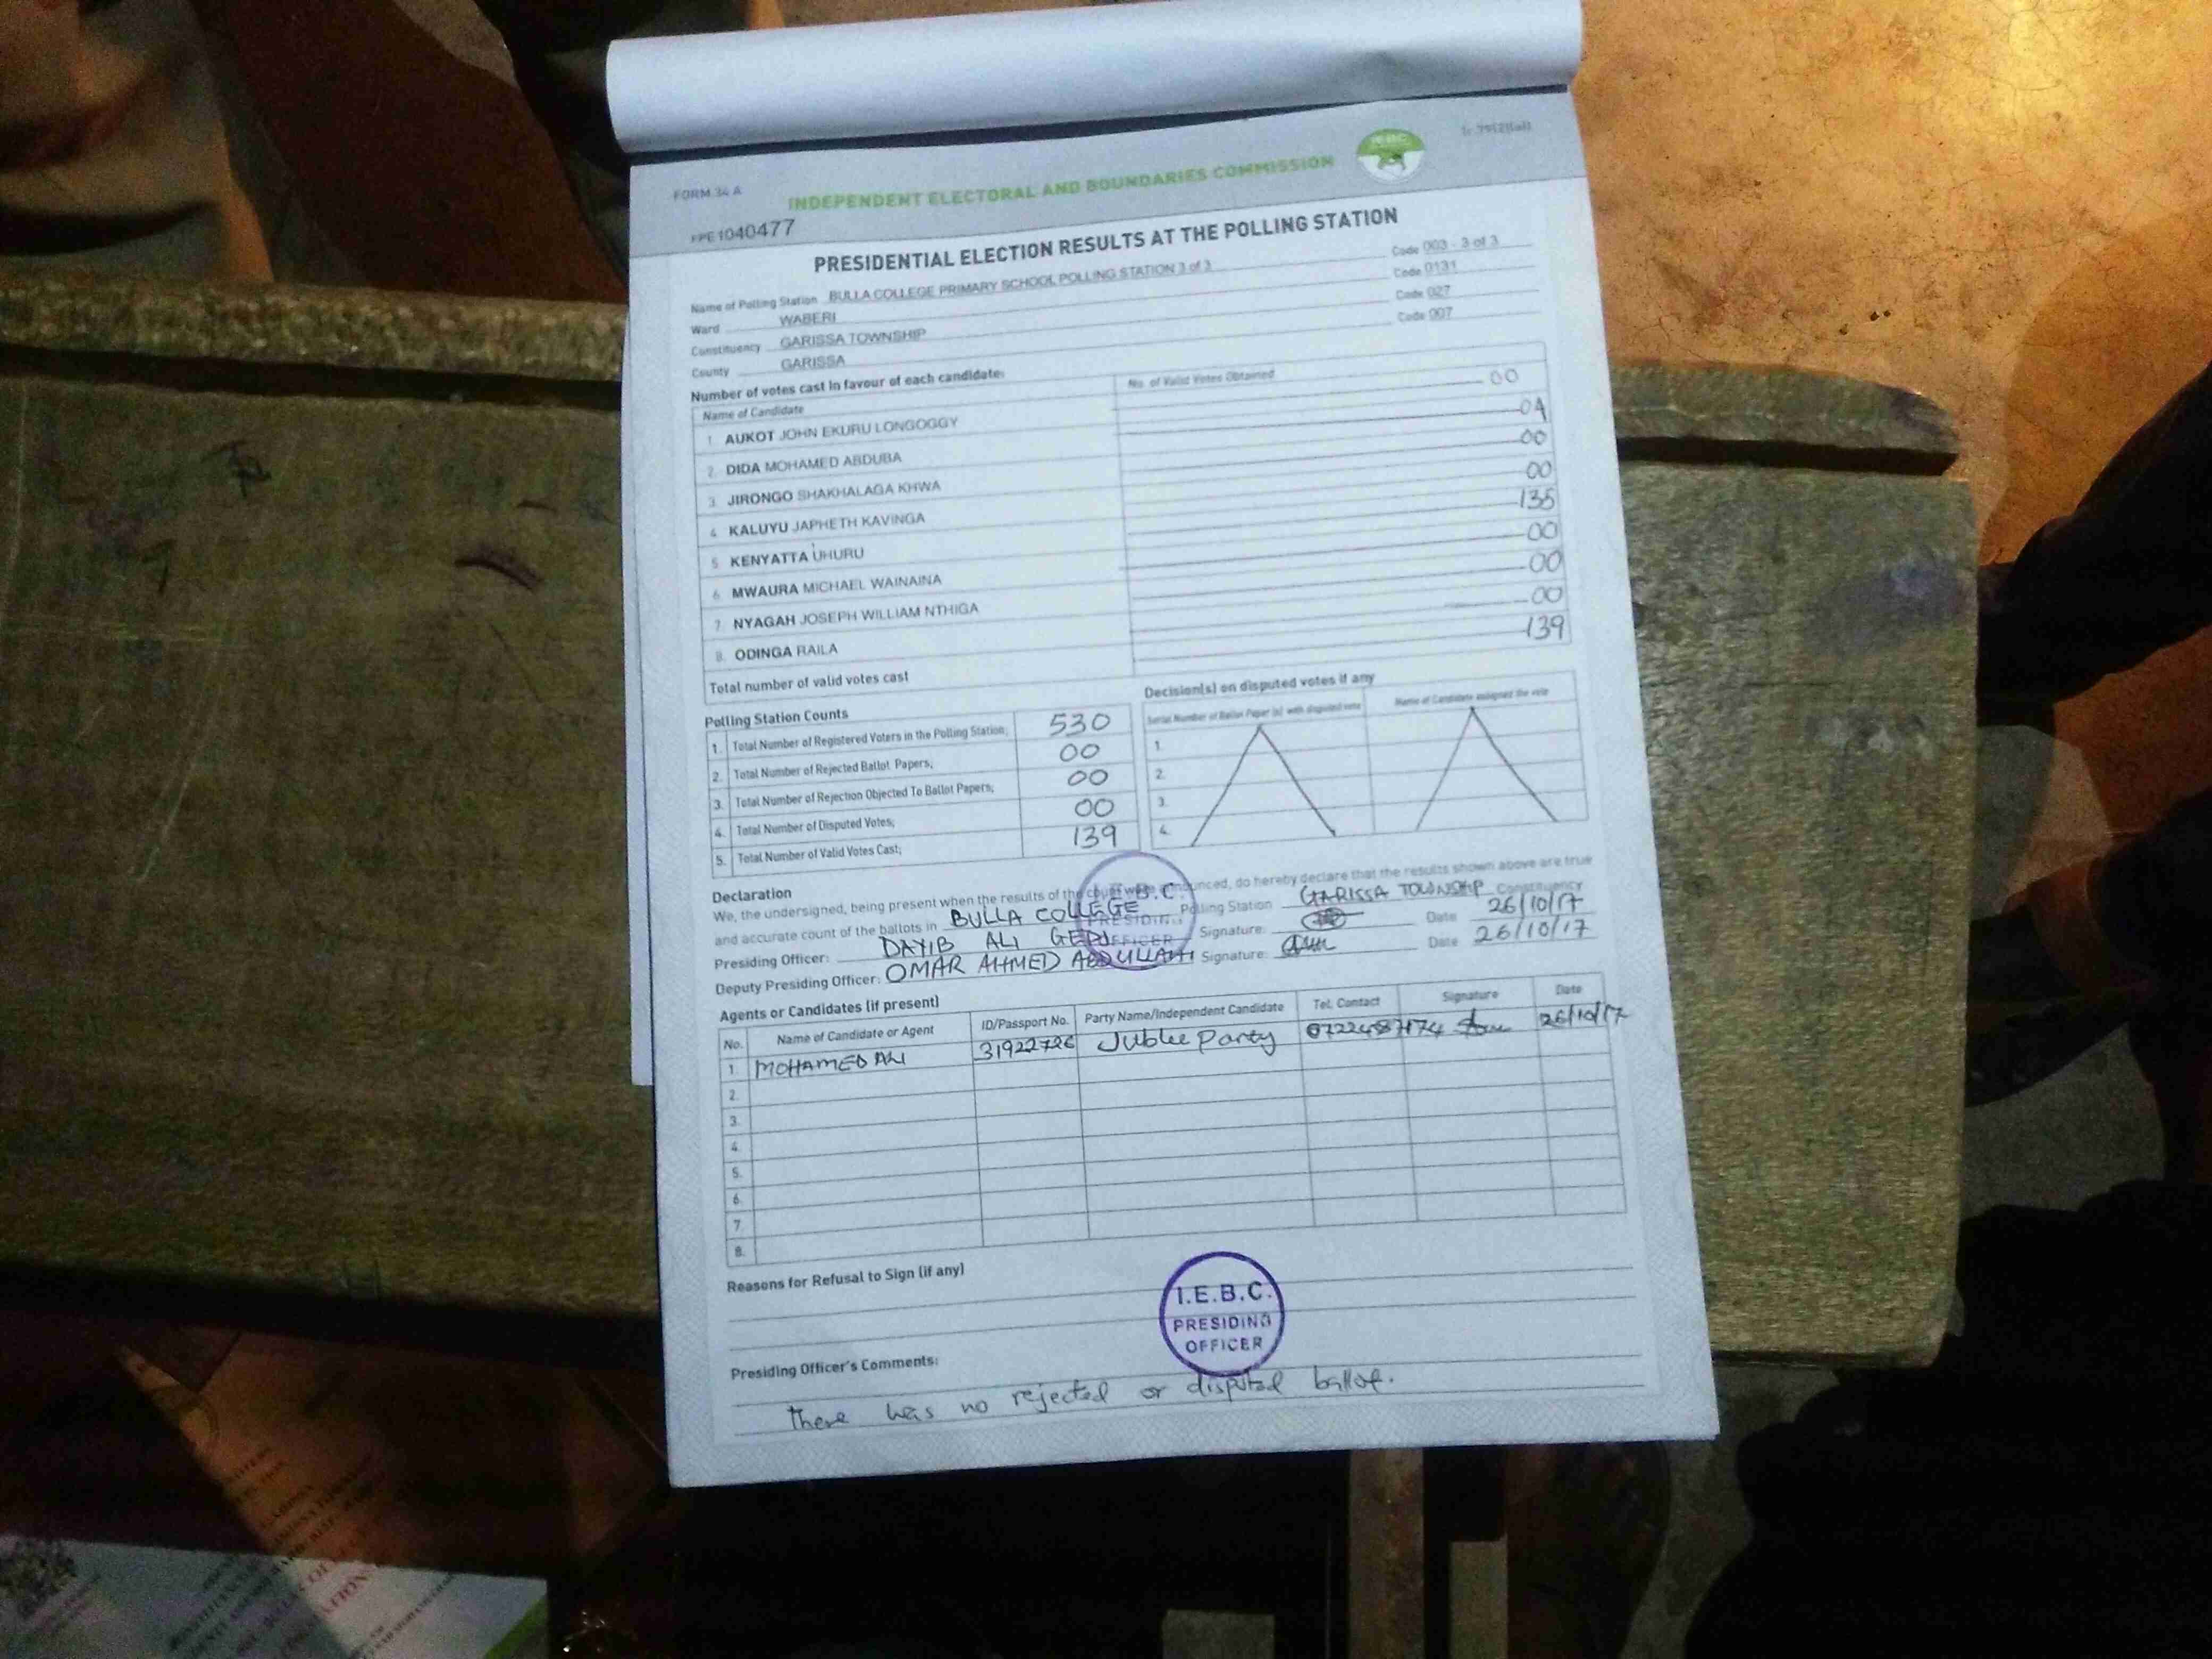 FORM 34 A
INDEPENDENT ELECTORAL AND BOUNDARIES COMMISSION
IEBC
1040477
PRESIDENTIAL ELECTION RESULTS AT THE POLLING STATION
Name of Polling Station BULLA COLLEGE PRIMARY SCHOOL POLLING STATION 3 of 3 Code 003 - 3 of 3
Ward WABERI Code 0131
Constituency GARISSA TOWNSHIP Code 027
County GARISSA Code 007
Number of votes cast in favour of each candidate:
Name of Candidate No. of Valid Votes Obtained
1. AUKOT JOHN EKURU LONGOGGY 00
2. DIDA MOHAMED ABDUBA 04
3. JIRONGO SHAKHALAGA KHWA 00
4. KALUYU JAPHETH KAVINGA 00
5. KENYATTA UHURU 135
6. MWAURA MICHAEL WAINAINA 00
7. NYAGAH JOSEPH WILLIAM NTHIGA 00
8. ODINGA RAILA 00
Total number of valid votes cast 139
Polling Station Counts
1. Total Number of Registered Voters in the Polling Station; 530
2. Total Number of Rejected Ballot Papers; 00
3. Total Number of Rejection Objected To Ballot Papers; 00
4. Total Number of Disputed Votes; 00
5. Total Number of Valid Votes Cast; 139
Decision(s) on disputed votes if any
Serial Number of Ballot Paper (s) with disputed vote Name of Candidate assigned the vote
1.
2.
3.
4.
Declaration
We, the undersigned, being present when the results of the count were announced, do hereby declare that the results shown above are true
and accurate count of the ballots in BULLA COLLEGE Polling Station GARISSA TOWNSHIP Constituency
Presiding Officer: DAYIB ALI GEDI Signature: Date 26/10/17
Deputy Presiding Officer: OMAR AHMED ABDULLAHI Signature: Date 26/10/17
B.C
PRESIDING
OFFICER
Agents or Candidates (if present)
No. Name of Candidate or Agent ID/Passport No. Party Name/Independent Candidate Tel. Contact Signature Date
1. MOHAMED ALI 31922726 Jublee Party 26/10/17
2.
3.
4.
5.
6.
7.
8.
Reasons for Refusal to Sign (if any)
I.E.B.C.
PRESIDING
OFFICER
Presiding Officer's Comments:
There was no rejected or disputed ballot.